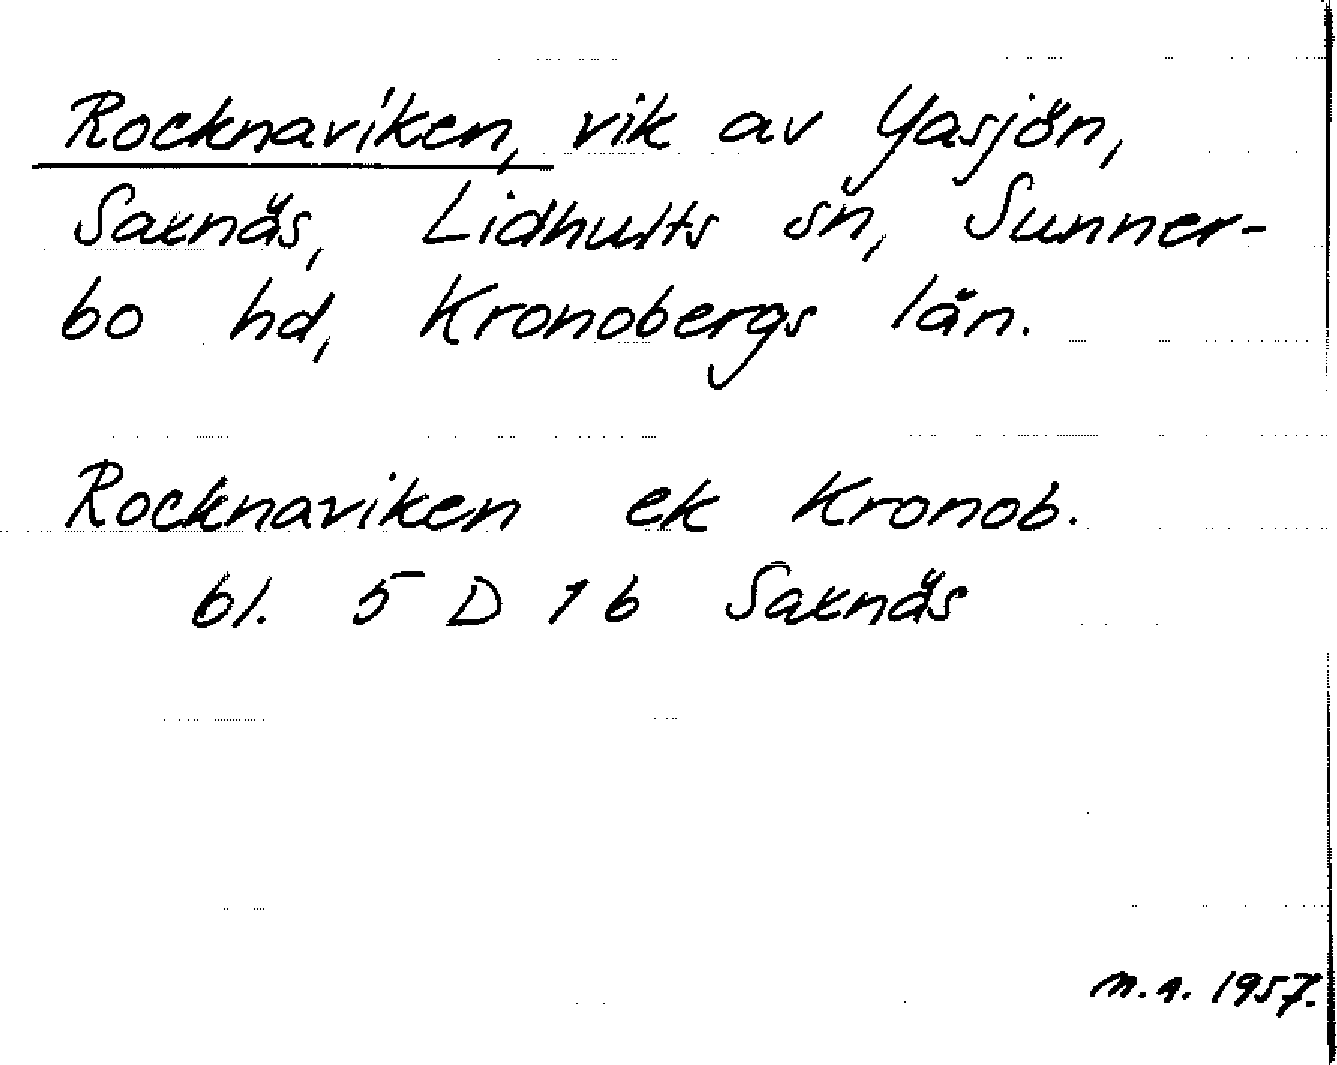 Rocknaviken, vik av Yasjön,
Saxnäs, Lidhults sn, Sunner-
bo hd, Kronobergs län.
Rocknaviken ek Kronob.
bl. 5 D 1 b Saxnäs
1957.